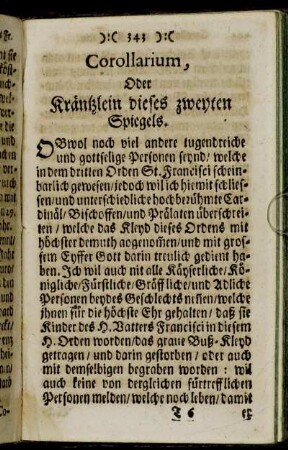 ):( 343 ):(
Corollarium,
Oder
Kräntzlein dieses zweyten
Spiegels.
OBwol noch viel andere tugendreiche
und gottselige Personen seynd/ welche
in dem dritten Orden St. Francisci schein-
barlich gewesen/ jedoch wil ich hiemit schlies-
sen/ und unterschiedliche hoch berühmte Car-
dinäl/ Bischoffen/ und Prälaten überschrei-
ten / welche das Kleyd dieses Ordens mit
höchster demuth angenom̃en/ und mit gros-
sem Eyffer Gott darin treulich gedient ha-
ben. Ich wil auch nit alle Käyserliche/ Kö-
nigliche/ Fürstliche/ Gräffliche/ und Adliche
Personen beydes Geschlechts neñen/ welche
jhnen für die höchste Ehr gehalten/ daß sie
Kinder des H. Vatters Francisci in diesem
H. Orden worden/ das graue Buß-Kleyd
getragen/ und darin gestorben / oder auch
mit demselbigen begraben worden : wil
auch keine von dergleichen fürtrefflichen
Personen melden/ welche noch leben/ damit
T 6 es